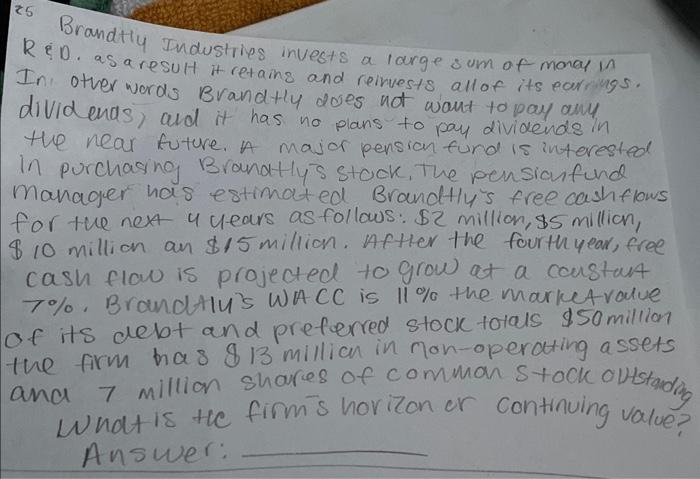 25
Brandtly Industries invests a large sum of money in
R & D. as a result it retains and reinvests all of its earnings.
In other words Brandtly does not want to pay any
dividends, and it has no plans to pay dividends in
the near future. A major pension fund is interested
in purchasing Brandtly's stock. The pension fund
manager has estimated Brandtly's free cash flows
for the next 4 years as follows: $2 million, $5 million,
$10 million an $15 million. Aftter the fourth year, free
cash flow is projected to grow at a constant
7%. Brandtly's WACC is 11% the market value
of its debt and preferred stock totals $50 million
the firm has $13 million in non-operating assets
and 7 million shares of common stock outstanding
What is the firm's horizon or continuing value?
Answer: